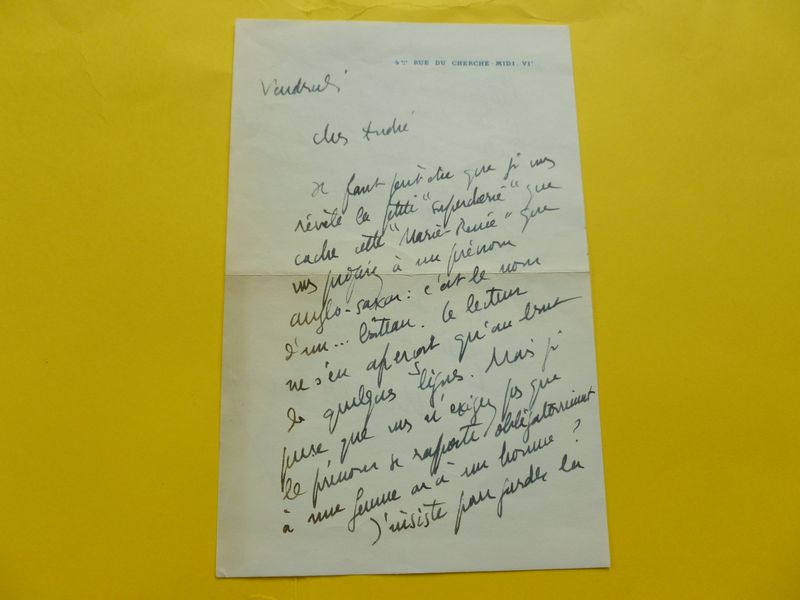 RUE DU CHERCHE-MIDI. VI
Vendredi
Cher André
Il faut peut-être que je vous
révèle la petite "supercherie" que
cache cette "Marie-Renée" que
vous préférez à un prénom
anglo-saxon : c'est le nom
d'un... bateau. Le lecteur
ne s'en aperçoit qu'au bout
de quelques lignes. Mais je
pense que vous n'exigez pas que
le prénom se rapporte obligatoirement
à une femme ou à un homme ?
J'insiste pour garder la